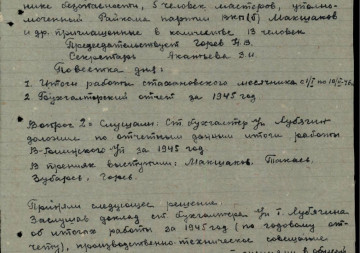 нике безопасности, 5 человек мастеров, уполно-
моченный Райкома партии ВКП(б) Макшаков
и др. приглашенные в количестве 13 человек
Председательствует Горев
Секретарь
Повестка дня:
1. Итоги работы стахановского месячника с
2. Бухгалтерский отчет за 1945 год
Вопрос 2: Слушали: Ст. бухгалтер Лубягин
доложил по отчетным данным итоги работы
за 1945 год.
В прениях выступили: Макшаков, Токаев,
Зубарев, Горев.
Приняли следующее решение.
Заслушав доклад ст. бухгалтера т. Лубягина
об итогах работы за 1945 год (по годовому от-
чету), производственно-техническое совещание